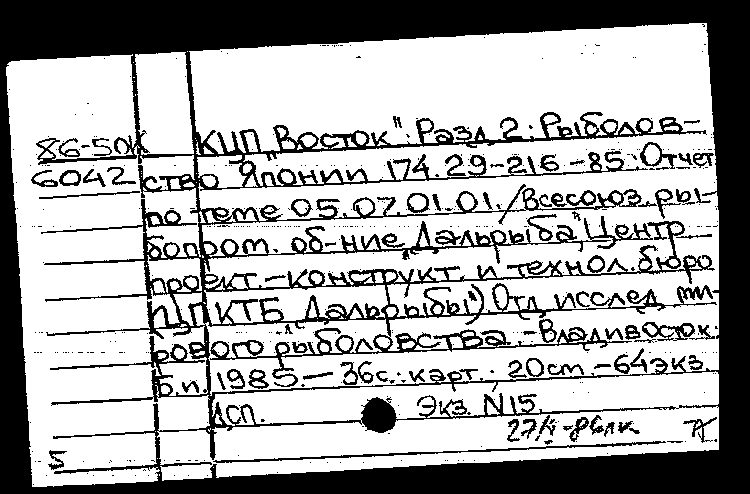 86-50К КЦП „Восток“: Разд. 2: Рыболов-
6042 ство Японии 174.29-216-85: Отчет
по теме 05.07.01.01./Всесоюз. ры-
бопром. об-ние „Дальрыба“, Центр.
проект.-конструкт. и технол. бюро
(ЦПКТБ „Дальрыбы“) Отд. исслед. ми-
рового рыболовства.-Владивосток:
Б.и. 1985.- 36с.: карт.; 20cm.-64экз.
ДСП. Экз. №15.